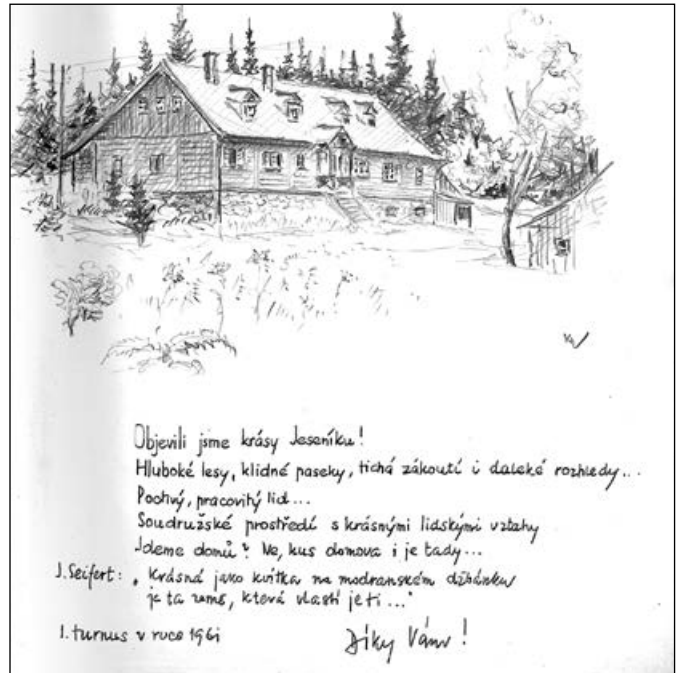 Objevili jsme krásy Jeseníku!
Hluboké lesy, klidné paseky, tichá zákoutí i daleké rozhledy...
Poctivý, pracovitý lid...
Soudružské prostředí s krásnými lidskými vztahy
Jdeme domů? Ne, kus domova i je tady...
J. Seifert: „Krásná jako kvítka na modranském džbánku
je ta země, která vlastí je ti..."
I. turnus v roce 1961
Díky Vám!